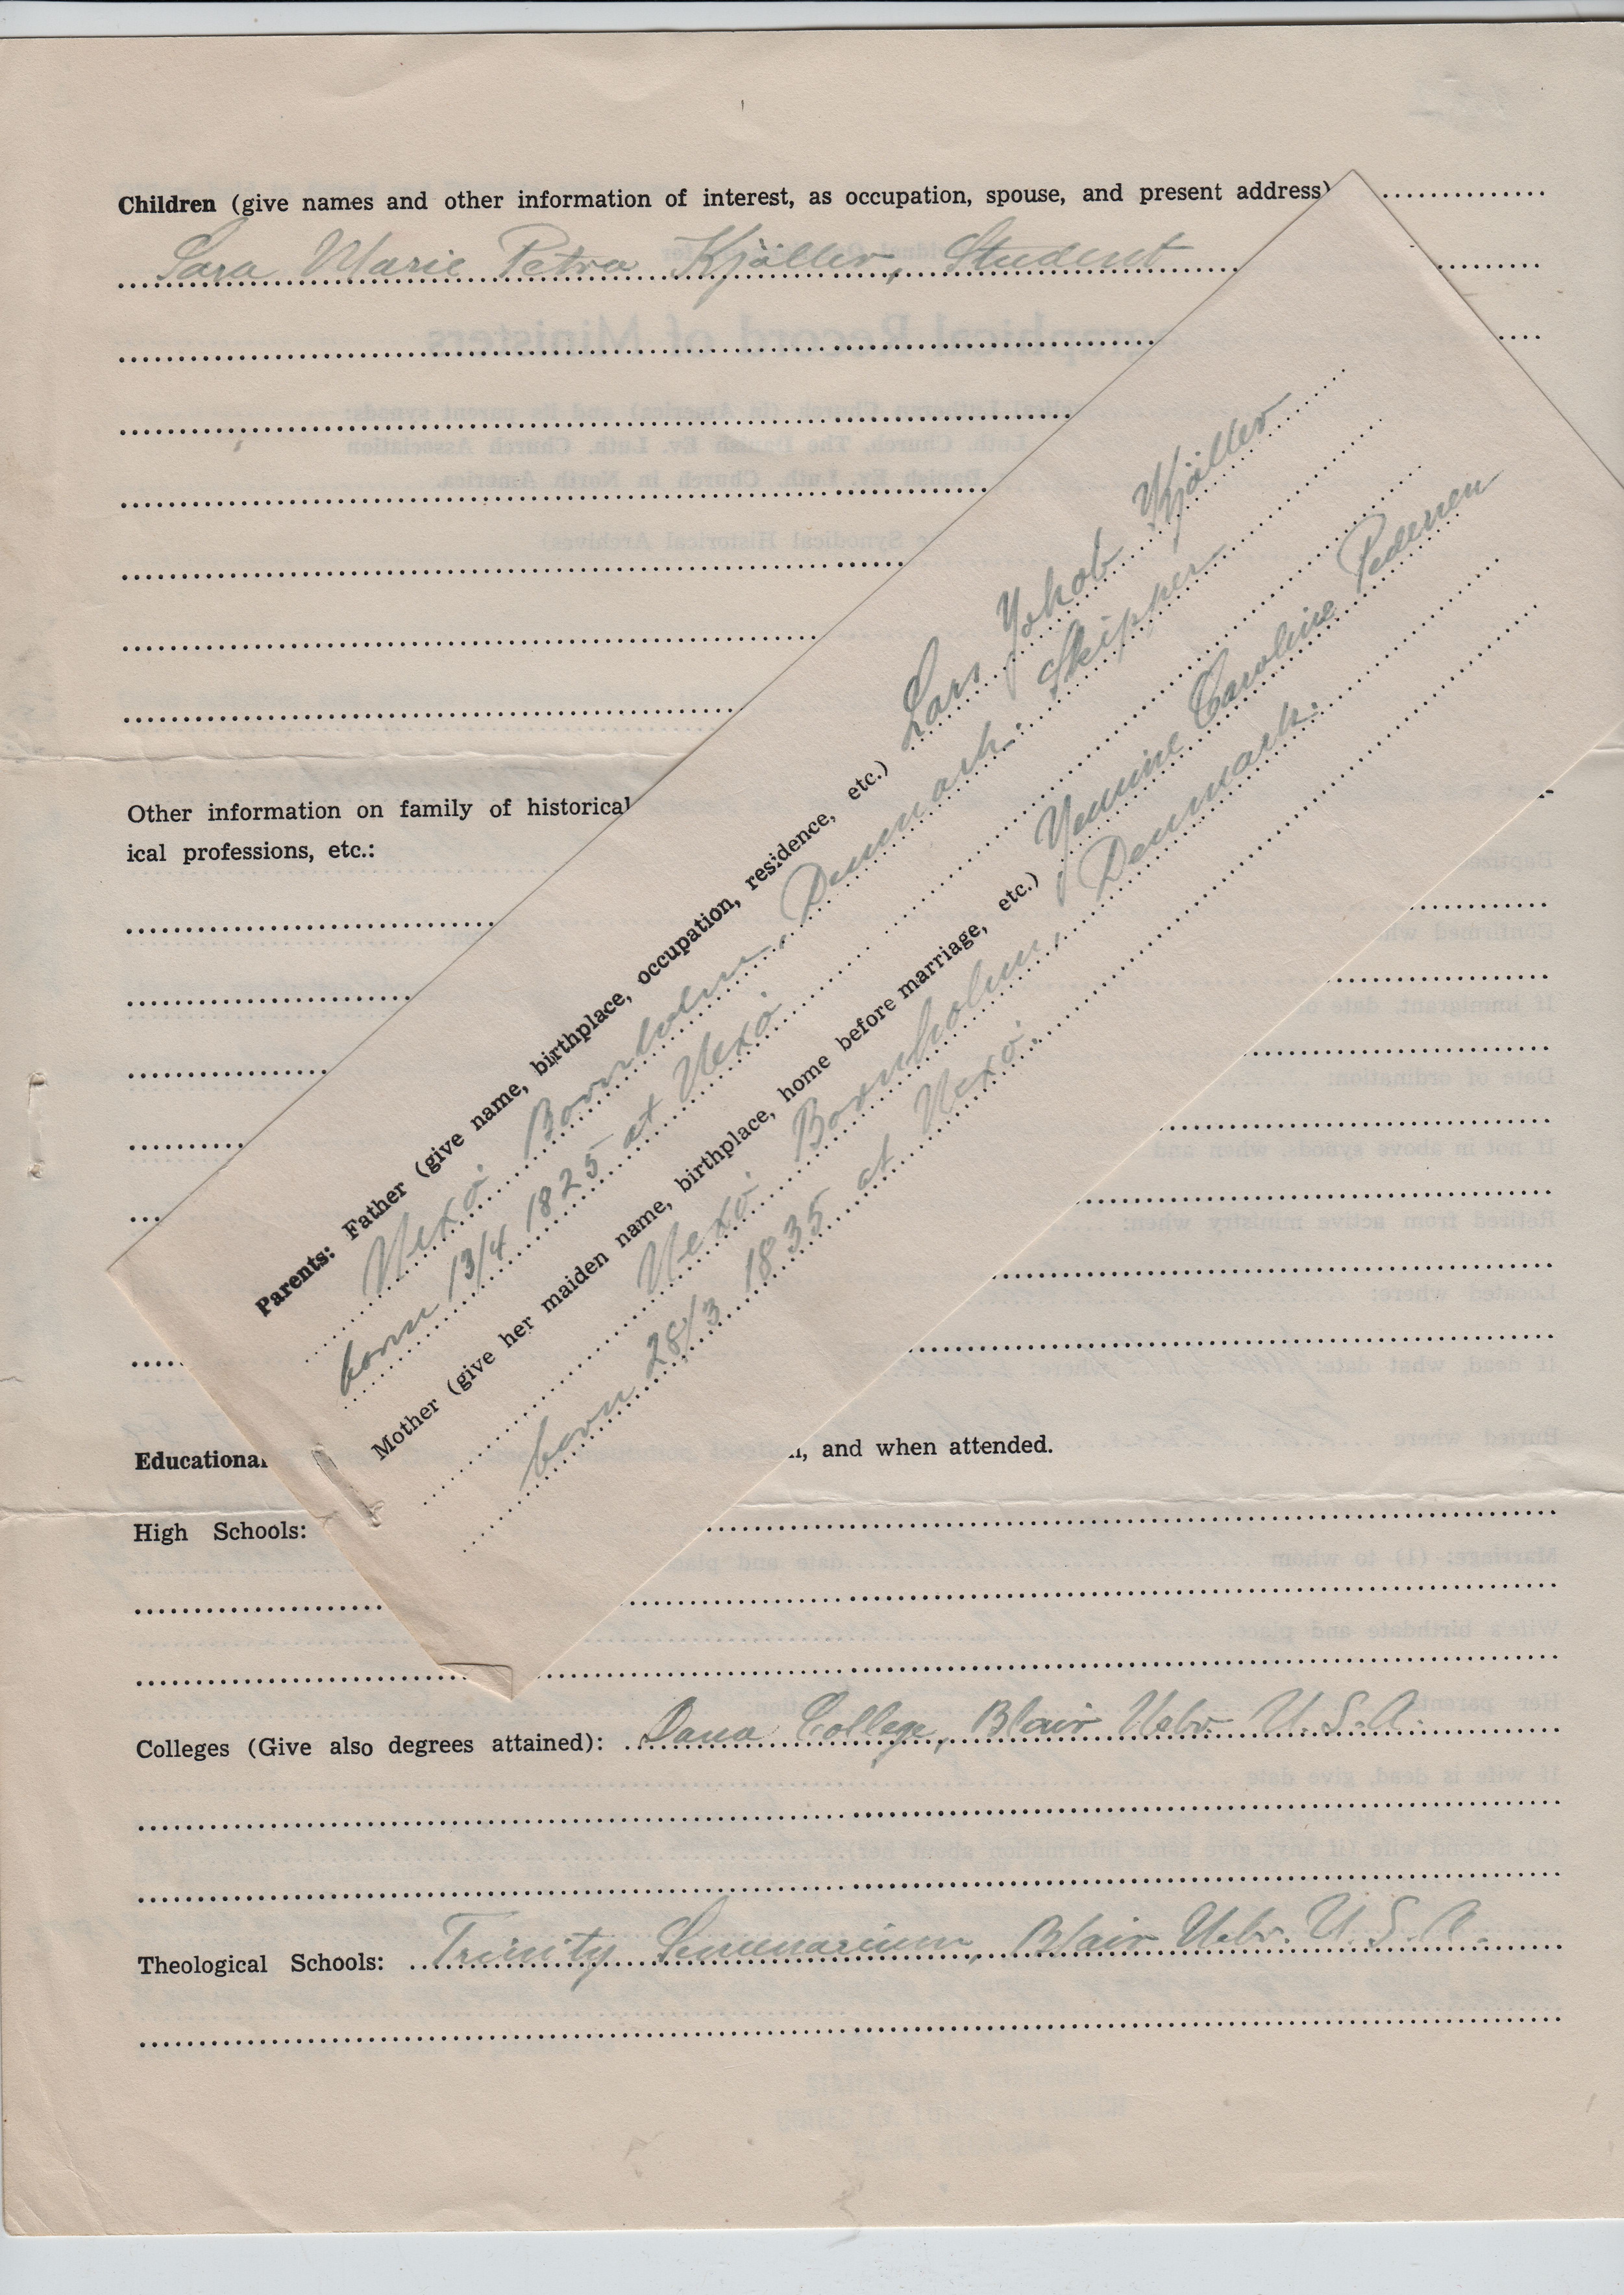 Children (give names and other information of interest, as occupation, spouse, and present address)
Sara Marie Petra Kjöller, Student
Other information on family of historical
ical professions, etc.:
Parents: Father (give name, birthplace, occupation, residence, etc.) Lars Jakob Kjöller
Nexö. Bornholm, Denmark. Skipper
born 13/4 1825 at Nexö.
Mother (give her maiden name, birthplace, home before marriage, etc.) Jensine Caroline Pedersen
Nexö. Bornholm, Denmark.
born 28/3 1835 at Nexö.
Educational
, and when attended.
High Schools:
Colleges (Give also degrees attained): Dana College, Blair Nebr. U.S.A.
Theological Schools: Trinity Semenarium, Blair Nebr. U.S.A.